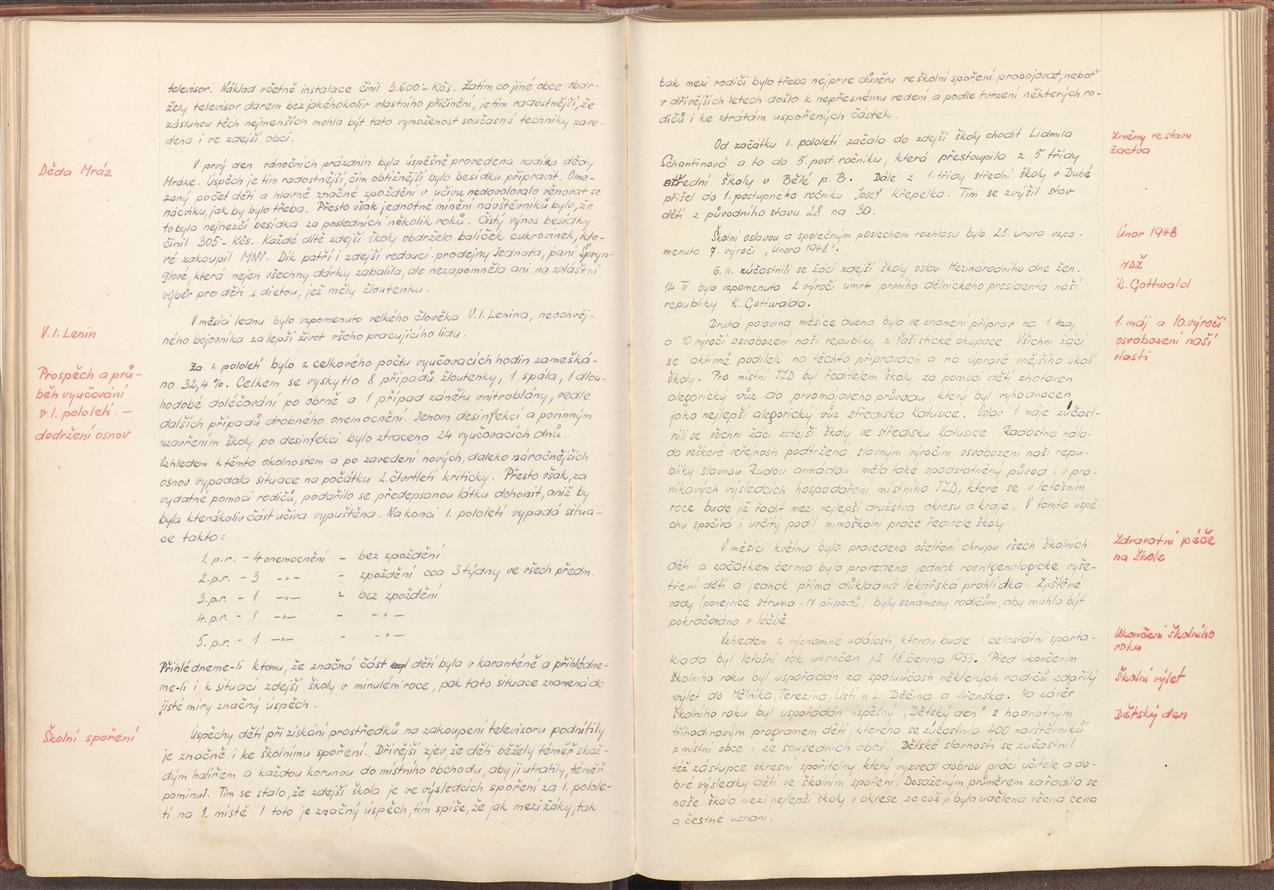 televisor. Náklad včetně instalace činil 3.600'- Kčs. Zatím co jiné obce obdr-
žely televisor darem bez jakéhokoliv vlastního přičinění, je tím radostnější, že
zásluhou těch nejmenších mohla být tato vymoženost současné techniky zave-
dena i ve zdejší obci.
Děda Mráz
V prvý den vánočních prázdnin byla úspěšně provedena nadílka dědy
Mráze. Úspěch je tím radostnější, čím obtížnější bylo besídku připravit. Ome-
zený počet dětí a hlavně značné zpoždění v učivu nedovolovalo věnovat se
nácviku, jak by bylo třeba. Přesto však jednotné mínění návštěvníků bylo, že
to byla nejhezčí besídka za posledních několik roků. Čistý výnos besídky
činil 305'- Kčs. Každé dítě zdejší školy obdrželo balíček cukrovinek, kte-
ré zakoupil MNV. Dík patří i zdejší vedoucí prodejny Jednota, paní Špryn-
glové, která nejen všechny dárky zabalila, ale nezapomněla ani na zvláštní
výběr pro děti s dietou, jež měly žloutenku.
V. I. Lenin
V měsíci lednu bylo vzpomenuto velkého člověka V. I. Lenina, neochvěj-
ného bojovníka za lepší život všeho pracujícího lidu.
Prospěch a prů-
běh vyučování
v 1. pololetí. –
dodržení osnov
Za 1. pololetí bylo z celkového počtu vyučovacích hodin zamešká-
no 32,4 %. Celkem se vyskytlo 8 případů žloutenky, 1 spála, 1 dlou-
hodobé doléčování po obrně a 1 případ zánětu vnitroblány, vedle
dalších případů drobného onemocnění. Jenom desinfekcí a povinným
uzavřením školy po desinfekci bylo ztraceno 24 vyučovacích dnů.
Vzhledem k těmto okolnostem a po zavedení nových, daleko náročnějších
osnov vypadala situace na počátku 2. čtvrtletí kriticky. Přesto však, za
vydatné pomoci rodičů, podařilo se předepsanou látku dohonit, aniž by
byla kterákoliv část učiva vypuštěna. Na konci 1. pololetí vypadá situa-
ce takto:
1. p.r. - 4 onemocnění - bez zpoždění
2. p.r. - 3 -„- - zpoždění cca 3 týdny ve všech předm.
3. p.r. - 1 -„- - bez zpoždění
4. p.r. - 1 -„- - -„-
5. p.r. - 1 -„- - -„-
Přihlédneme-li k tomu, že značná část dětí byla v karanténě a přihlédne-
me-li i k situaci zdejší školy v minulém roce, pak tato situace znamená do
jisté míry značný úspěch.
Školní spoření
Úspěchy dětí při získání prostředků na zakoupení televisoru podnítily
je značně i ke školnímu spoření. Dřívější zjev, že děti běžely téměř s kaž-
dým halířem a každou korunou do místního obchodu, aby ji utratily, téměř
pominul. Tím se stalo, že zdejší škola je ve výsledcích spoření za 1. polole-
tí na 1. místě. I toto je značný úspěch, tím spíše, že jak mezi žáky, tak
tak mezi rodiči bylo třeba nejprve důvěru ve školní spoření probojovat, neboť
v dřívějších letech došlo k nepřesnému vedení a podle tvrzení některých ro-
dičů i ke ztrátám uspořených částek.
Změny ve stavu
žactva
Od začátku II. pololetí začala do zdejší školy chodit Lidmila
Schantinová a to do 5. post. ročníku, která přestoupila z 5 třídy
střední školy v Bělé p. B. Dále z 1. třídy střední školy v Dubé
přišel do 1. postupného ročníku Josef Křepelka. Tím se zvýšil stav
dětí z původního stavu 28 na 30.
Únor 1948
Školní oslavou a společným poslechem rozhlasu bylo 25. února vzpo-
menuto 7. výročí „Února 1948".
MDŽ
6. III. zúčastnili se žáci zdejší školy oslav Mezinárodního dne žen.
K. Gottwald
14. III. bylo vzpomenuto 2 výročí úmrtí prvního dělnického presidenta naší
republiky K. Gottwalda.
1. máj a 10. výročí
osvobození naší
vlasti
Druhá polovina měsíce dubna bylo ve znamení příprav na 1. máj
a 10 výročí osvobození naší republiky z fašistické okupace. Všichni žáci
se aktivně podíleli na těchto přípravách a na úpravě vnějšího okolí
školy. Pro místní JZD byl ředitelem školy za pomoci dětí zhotoven
alegorický vůz do prvomájového průvodu, který byl vyhodnocen
jako nejlepší alegorický vůz střediska Katusice. Oslav 1 máje zúčast-
nili se všichni žáci zdejší školy ve středisku Katusice. Radostná nála-
da veškeré veřejnosti podtržená slavným výročím osvobození naší repu-
bliky slavnou Rudou armádou měla také opodstatněný původ i v pro-
nikavých výsledcích hospodaření místního JZD, které se v letošním
roce bude již řadit mezi nejlepší družstva okresu a kraje. V tomto úspě-
chu spočívá i určitý podíl mimoškolní práce ředitele školy.
Zdravotní péče
na škole
V měsíci květnu bylo provedeno ošetření chrupu všech školních
dětí a začátkem června bylo provedeno jednak roentgenologické vyše-
tření dětí a jednak přímá důkladná lékařská prohlídka. Zjištěné
vady (ponejvíce struma - 17 případů) byly oznámeny rodičům, aby mohlo být
pokračováno v léčbě.
Ukončení školního
roku
Vzhledem k významné události, kterou bude I. celostátní sparta-
kiáda byl letošní rok ukončen již 18. června 1955. Před ukončením
Školní výlet
školního roku byl uspořádán za spoluúčasti některých rodičů zdařilý
výlet do Mělníka, Terezína, Ústí n. L., Děčína a Hřenska. Na závěr
Dětský den
školního roku byl uspořádán úspěšný „Dětský den" s hodnotným
tříhodinovým programem dětí, kterého se zúčastnilo 400 návštěvníků
z místní obce i ze sousedních obcí. Dětské slavnosti se zúčastnil
též zástupce okresní spořitelny který vyzvedl dobrou práci učitele a do-
bré výsledky dětí ve školním spoření. Dosaženým průměrem zařadila se
naše škola mezi nejlepší školy v okrese za což jí byla udělena věcná cena
a čestné uznání.